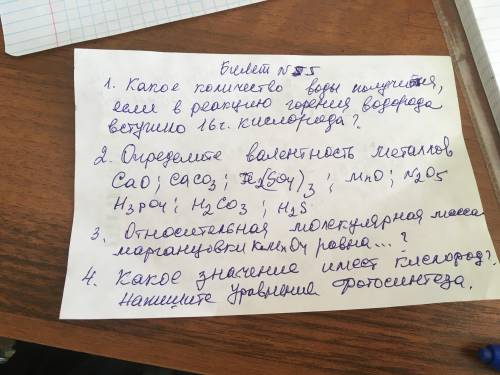 Билет N 5
1. Какое количество воды получится,
если в реакцию горения водорода
вступило 16 г. кислорода?
2. Определите валентность металлов
CaO; CaCO3; Fe2(SO4)3; MnO; N2O5
H3PO4; H2CO3; H2S.
3. Относительная молекулярная масса
марганцовки KMnO4 равна...?
4. Какое значение имеет кислород?
Напишите уравнение фотосинтеза.